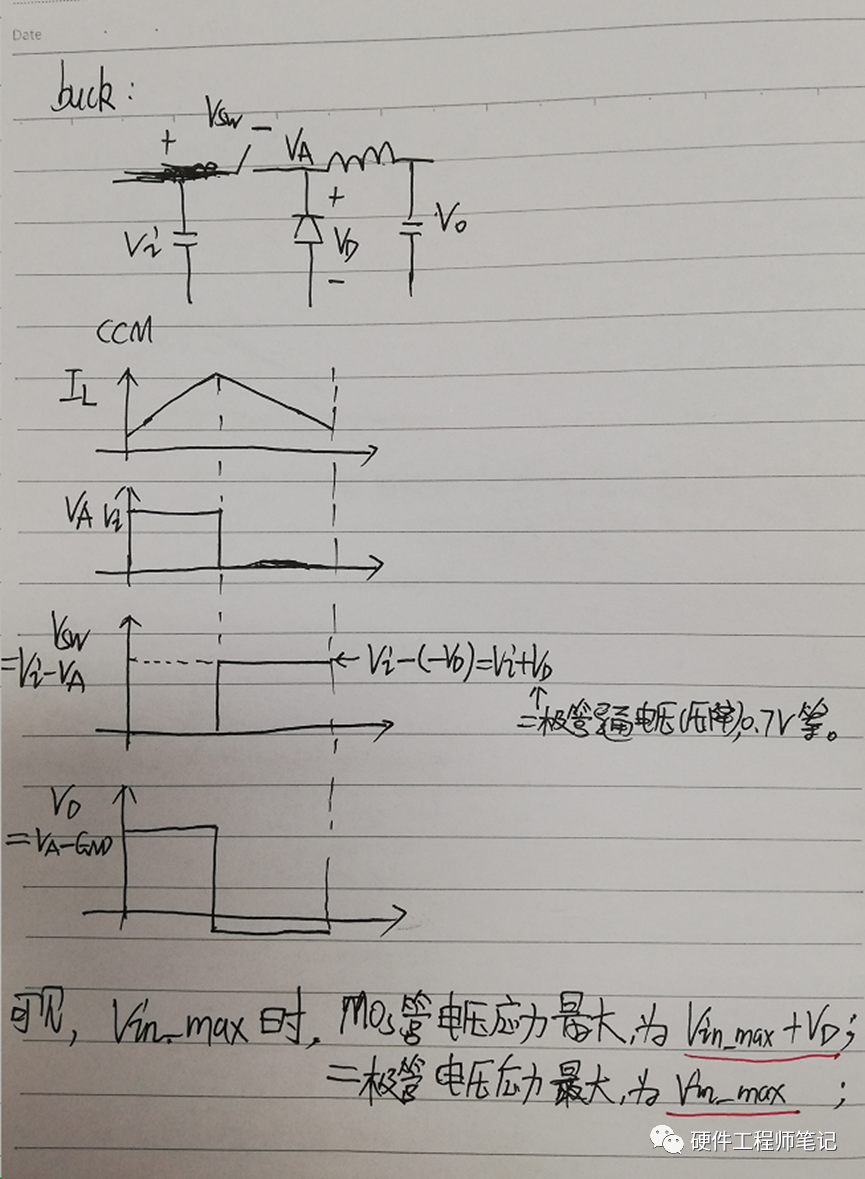 Date
buck:
+ Vsw -
VA
Vi + VD - Vo
CCM
IL
VA Vi
Vsw
=Vi-VA
Vi-(-VD)=Vi+VD
二极管导通电压(压降),0.7V等。
VD
=VA-GND
可见, Vin_max时, MOS管电压应力最大,为 Vin_max+VD;
二极管电压应力最大,为 Vin_max ;
硬件工程师笔记